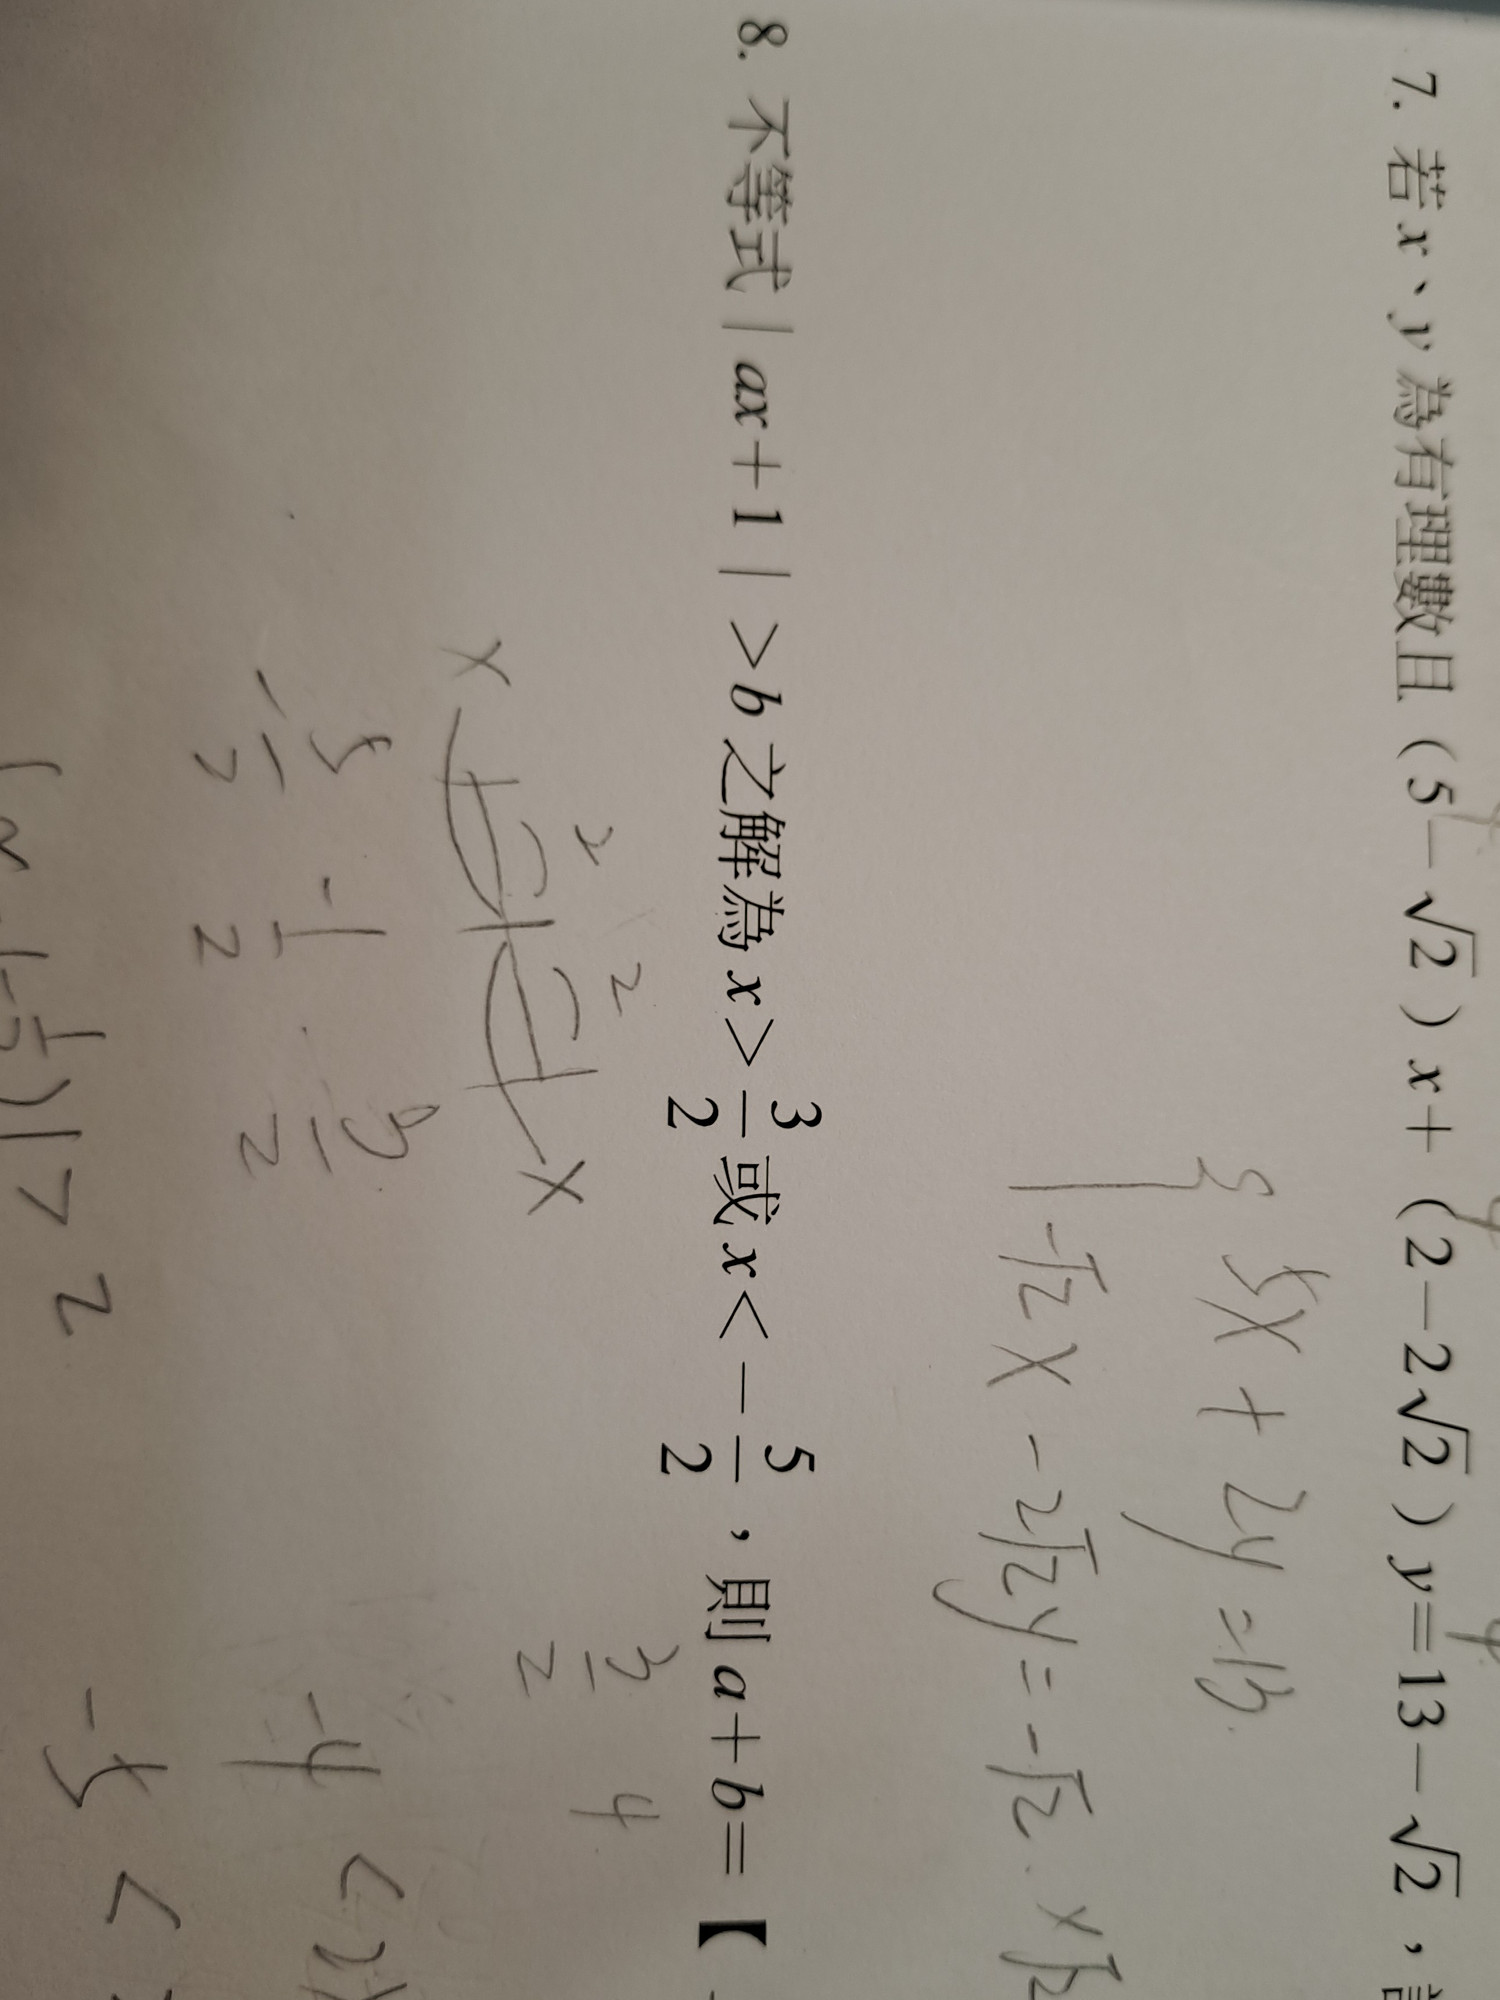 7. 若 x、y 為有理數且（5−√2）x+（2−2√2）y=13−√2，
5x + 2y = 13.
-√2x - 2√2y = -√2
8. 不等式 | ax+1 | >b 之解為 x> 3/2 或 x<− 5/2 ，則 a+b=【
3/2 4
2 2
x x
-5/2 -1/2 3/2
-4 <
)| > 2
-5 <